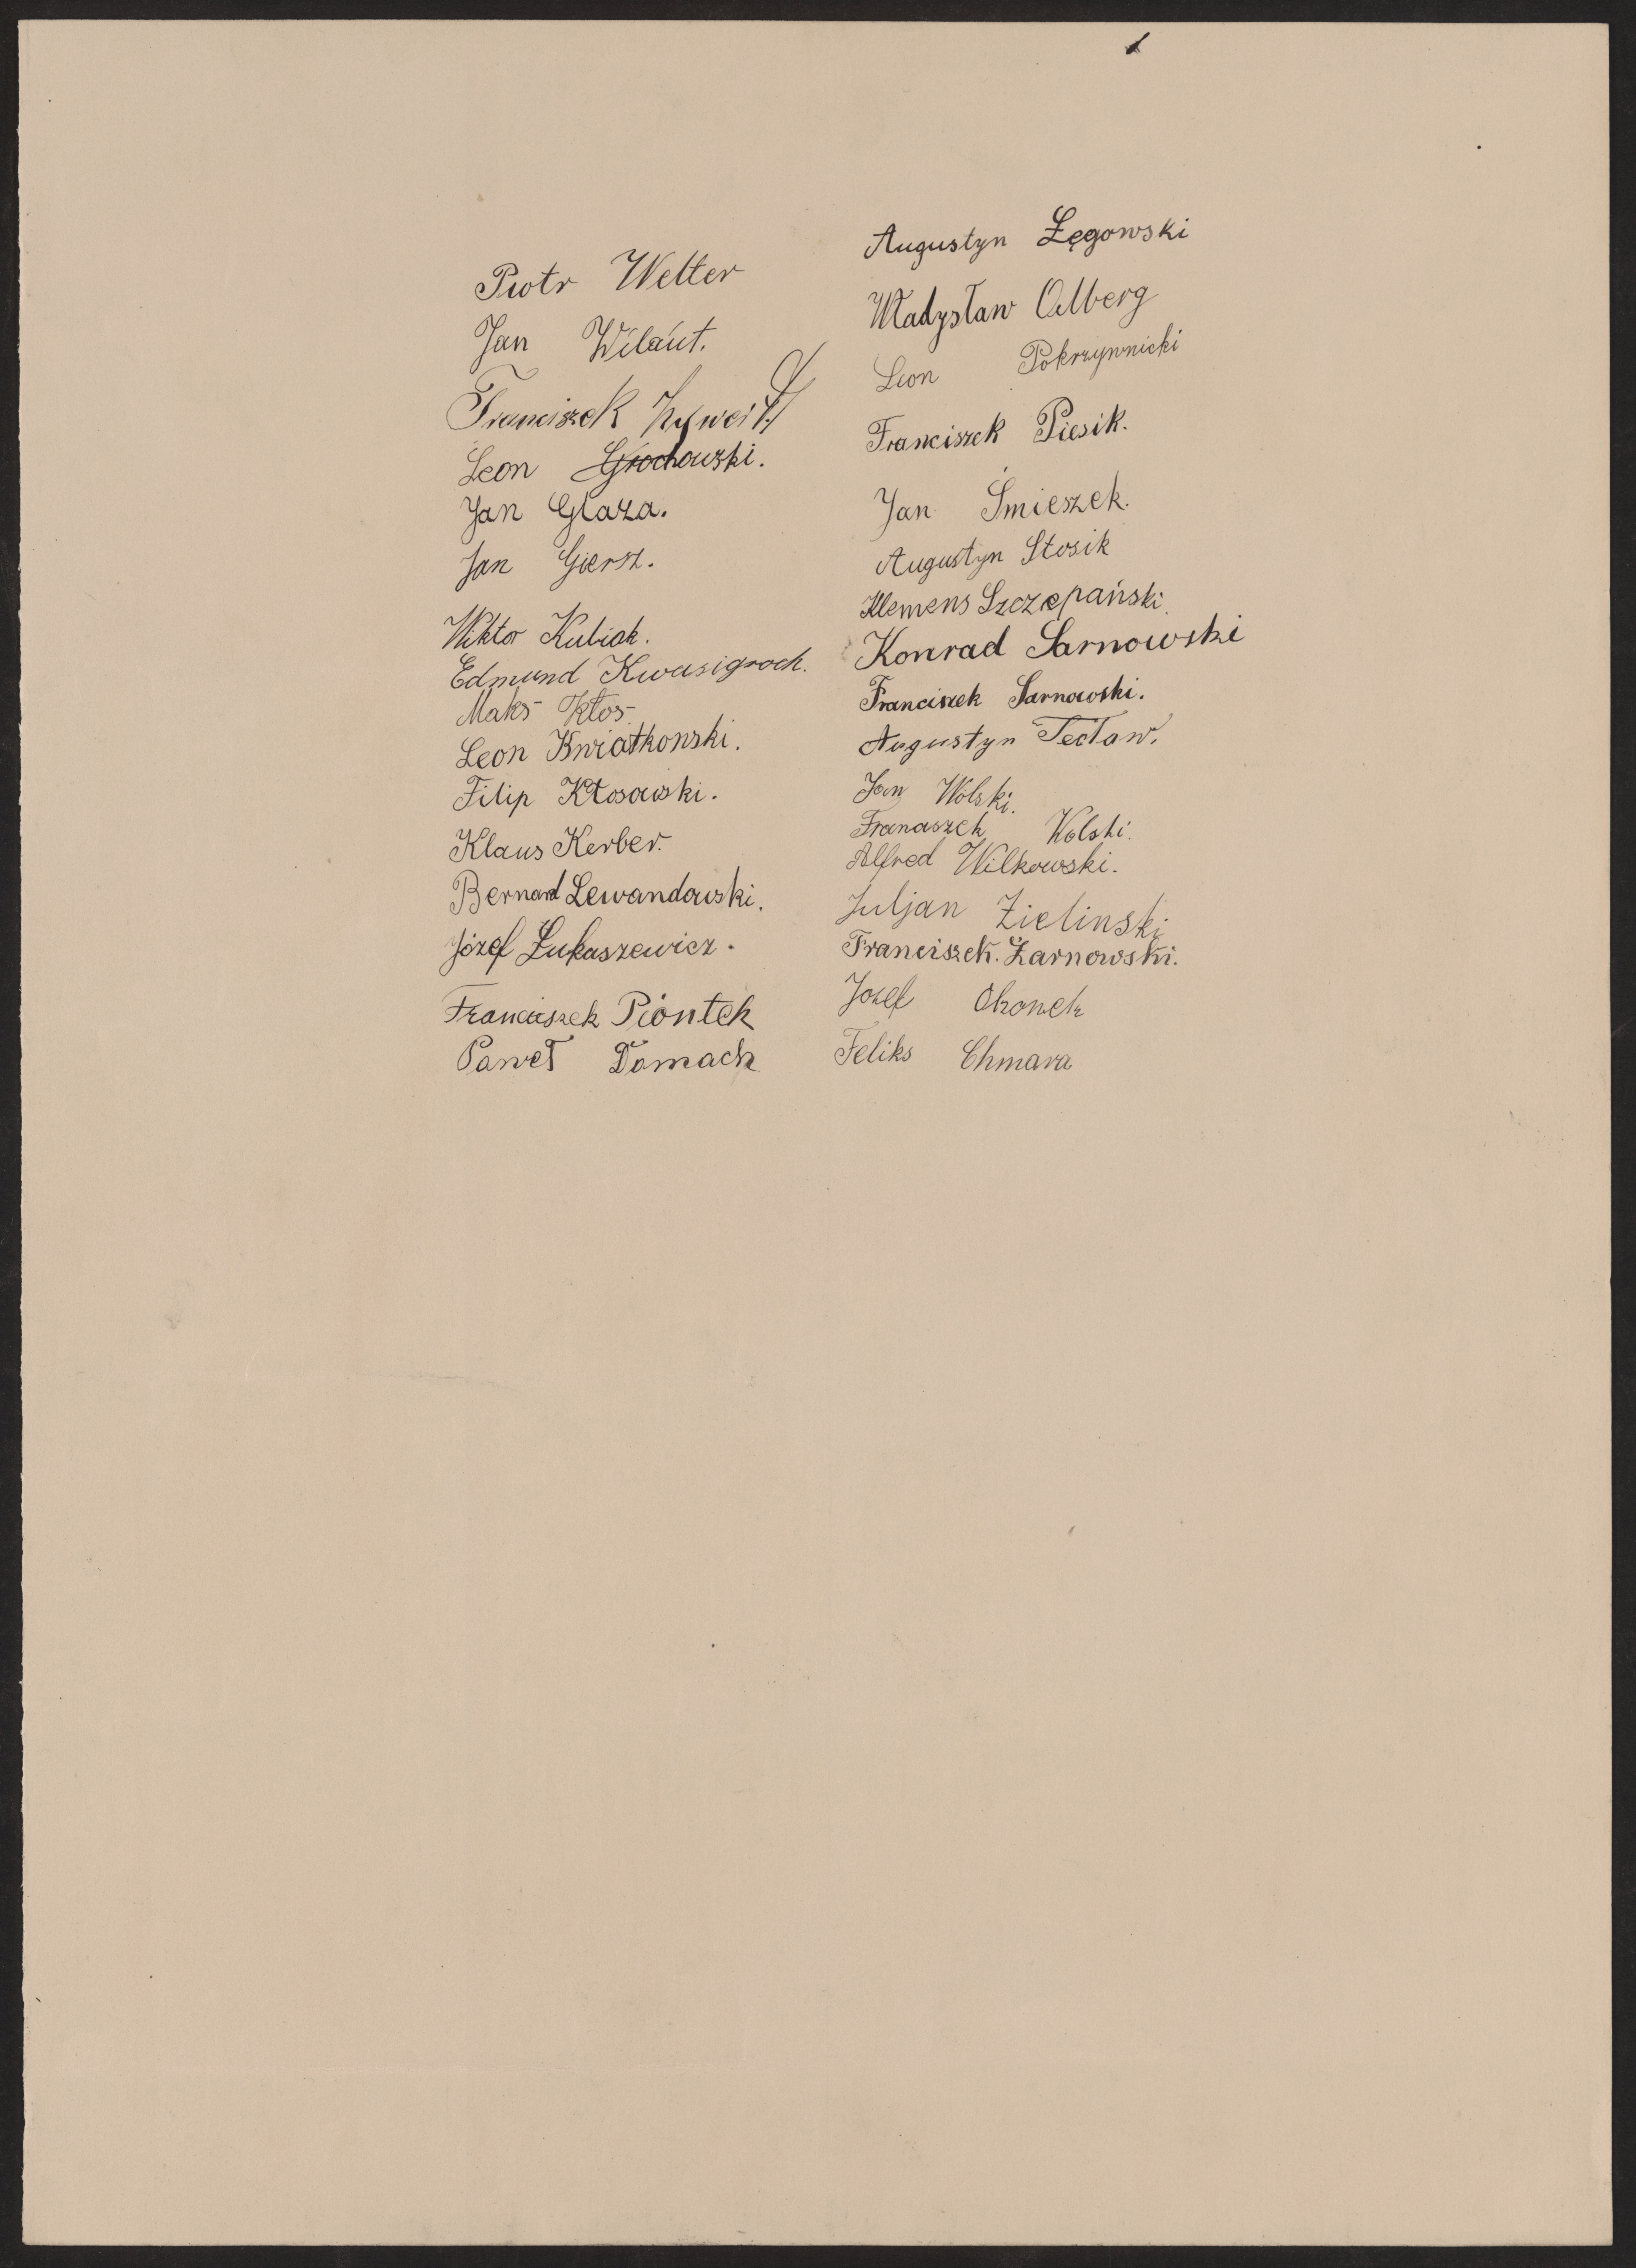 Piotr Welter
Jan Wilant.
Franciszek
Leon Grochowski.
Jan Glaza.
Jan Giersz.
Wiktor Kubiak.
Edmund Kwasigroch.
Maks Kłos
Leon Kwiatkowski.
Filip Kłosowski.
Klaus Kerber.
Bernard Lewandowski.
Józef Łukaszewicz.
Franciszek Piontek
Paweł Domach
Augustyn Łęgowski
Władysław Olberg
Leon Pokrzywnicki
Franciszek Piesik.
Jan Śmieszek.
Augustyn Stosik
Klemens Szczepański.
Konrad Sarnowski
Franciszek Sarnowski.
Augustyn Tecław.
Jan Wolski.
Franciszek Wolski.
Alfred Wilkowski.
Juljan Zielinski
Franciszek. Żarnowski.
Jozef Okonek
Feliks Chmara